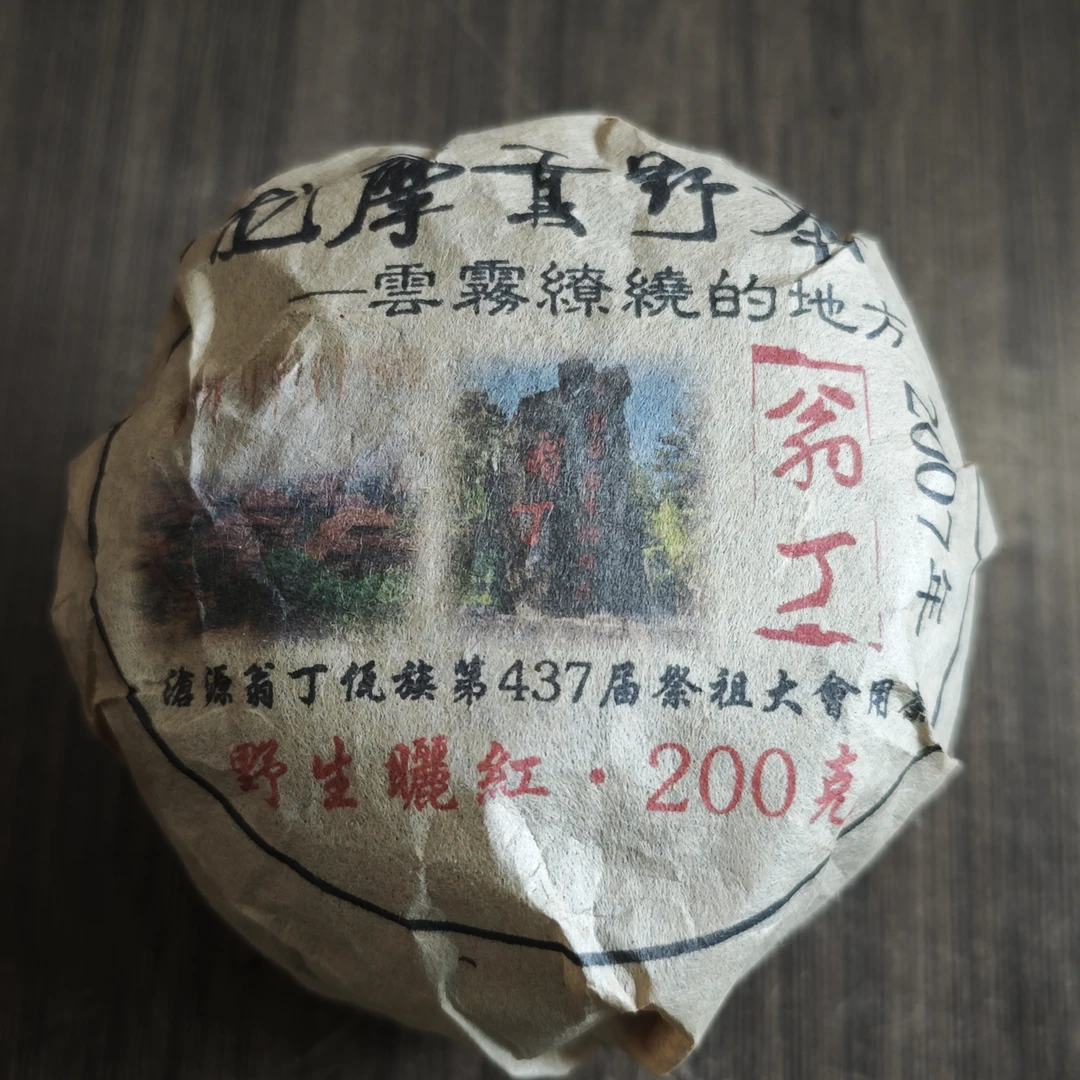 摩貢野茶
—雲霧繚繞的地方
翁丁
2007年
翁丁
滄源翁丁佤族第437届祭祖大會用茶
野生曬紅·200克